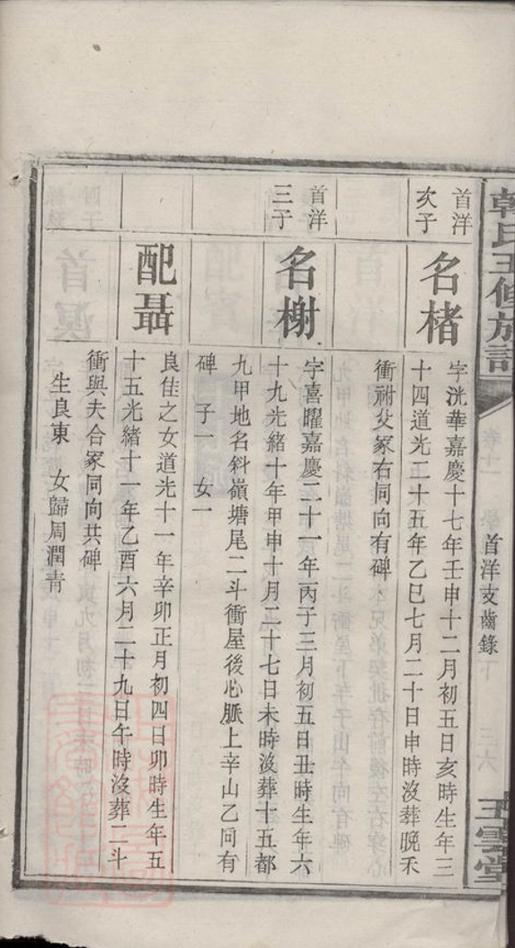 韓氏五修族譜
卷十一
首洋支齒錄
三六
玉雲堂
首洋
次子
名楮
字洸華嘉慶十七年壬申十二月初五日亥時生年三
十四道光二十五年乙巳七月二十日申時沒葬晚禾
衝祔父冢右同向有碑
首洋
三子
名榭
字喜曜嘉慶二十一年丙子三月初五日丑時生年六
十九光緒十年甲申十月二十七日未時沒葬十五都
九甲地名斜嶺塘尾二斗衝屋後心脈上辛山乙向有
碑 子一 女一
配聶
良佳之女道光十一年辛卯正月初四日卯時生年五
十五光緒十一年乙酉六月二十九日午時沒葬二斗
衝與夫合冢同向共碑
生良東 女歸周潤青